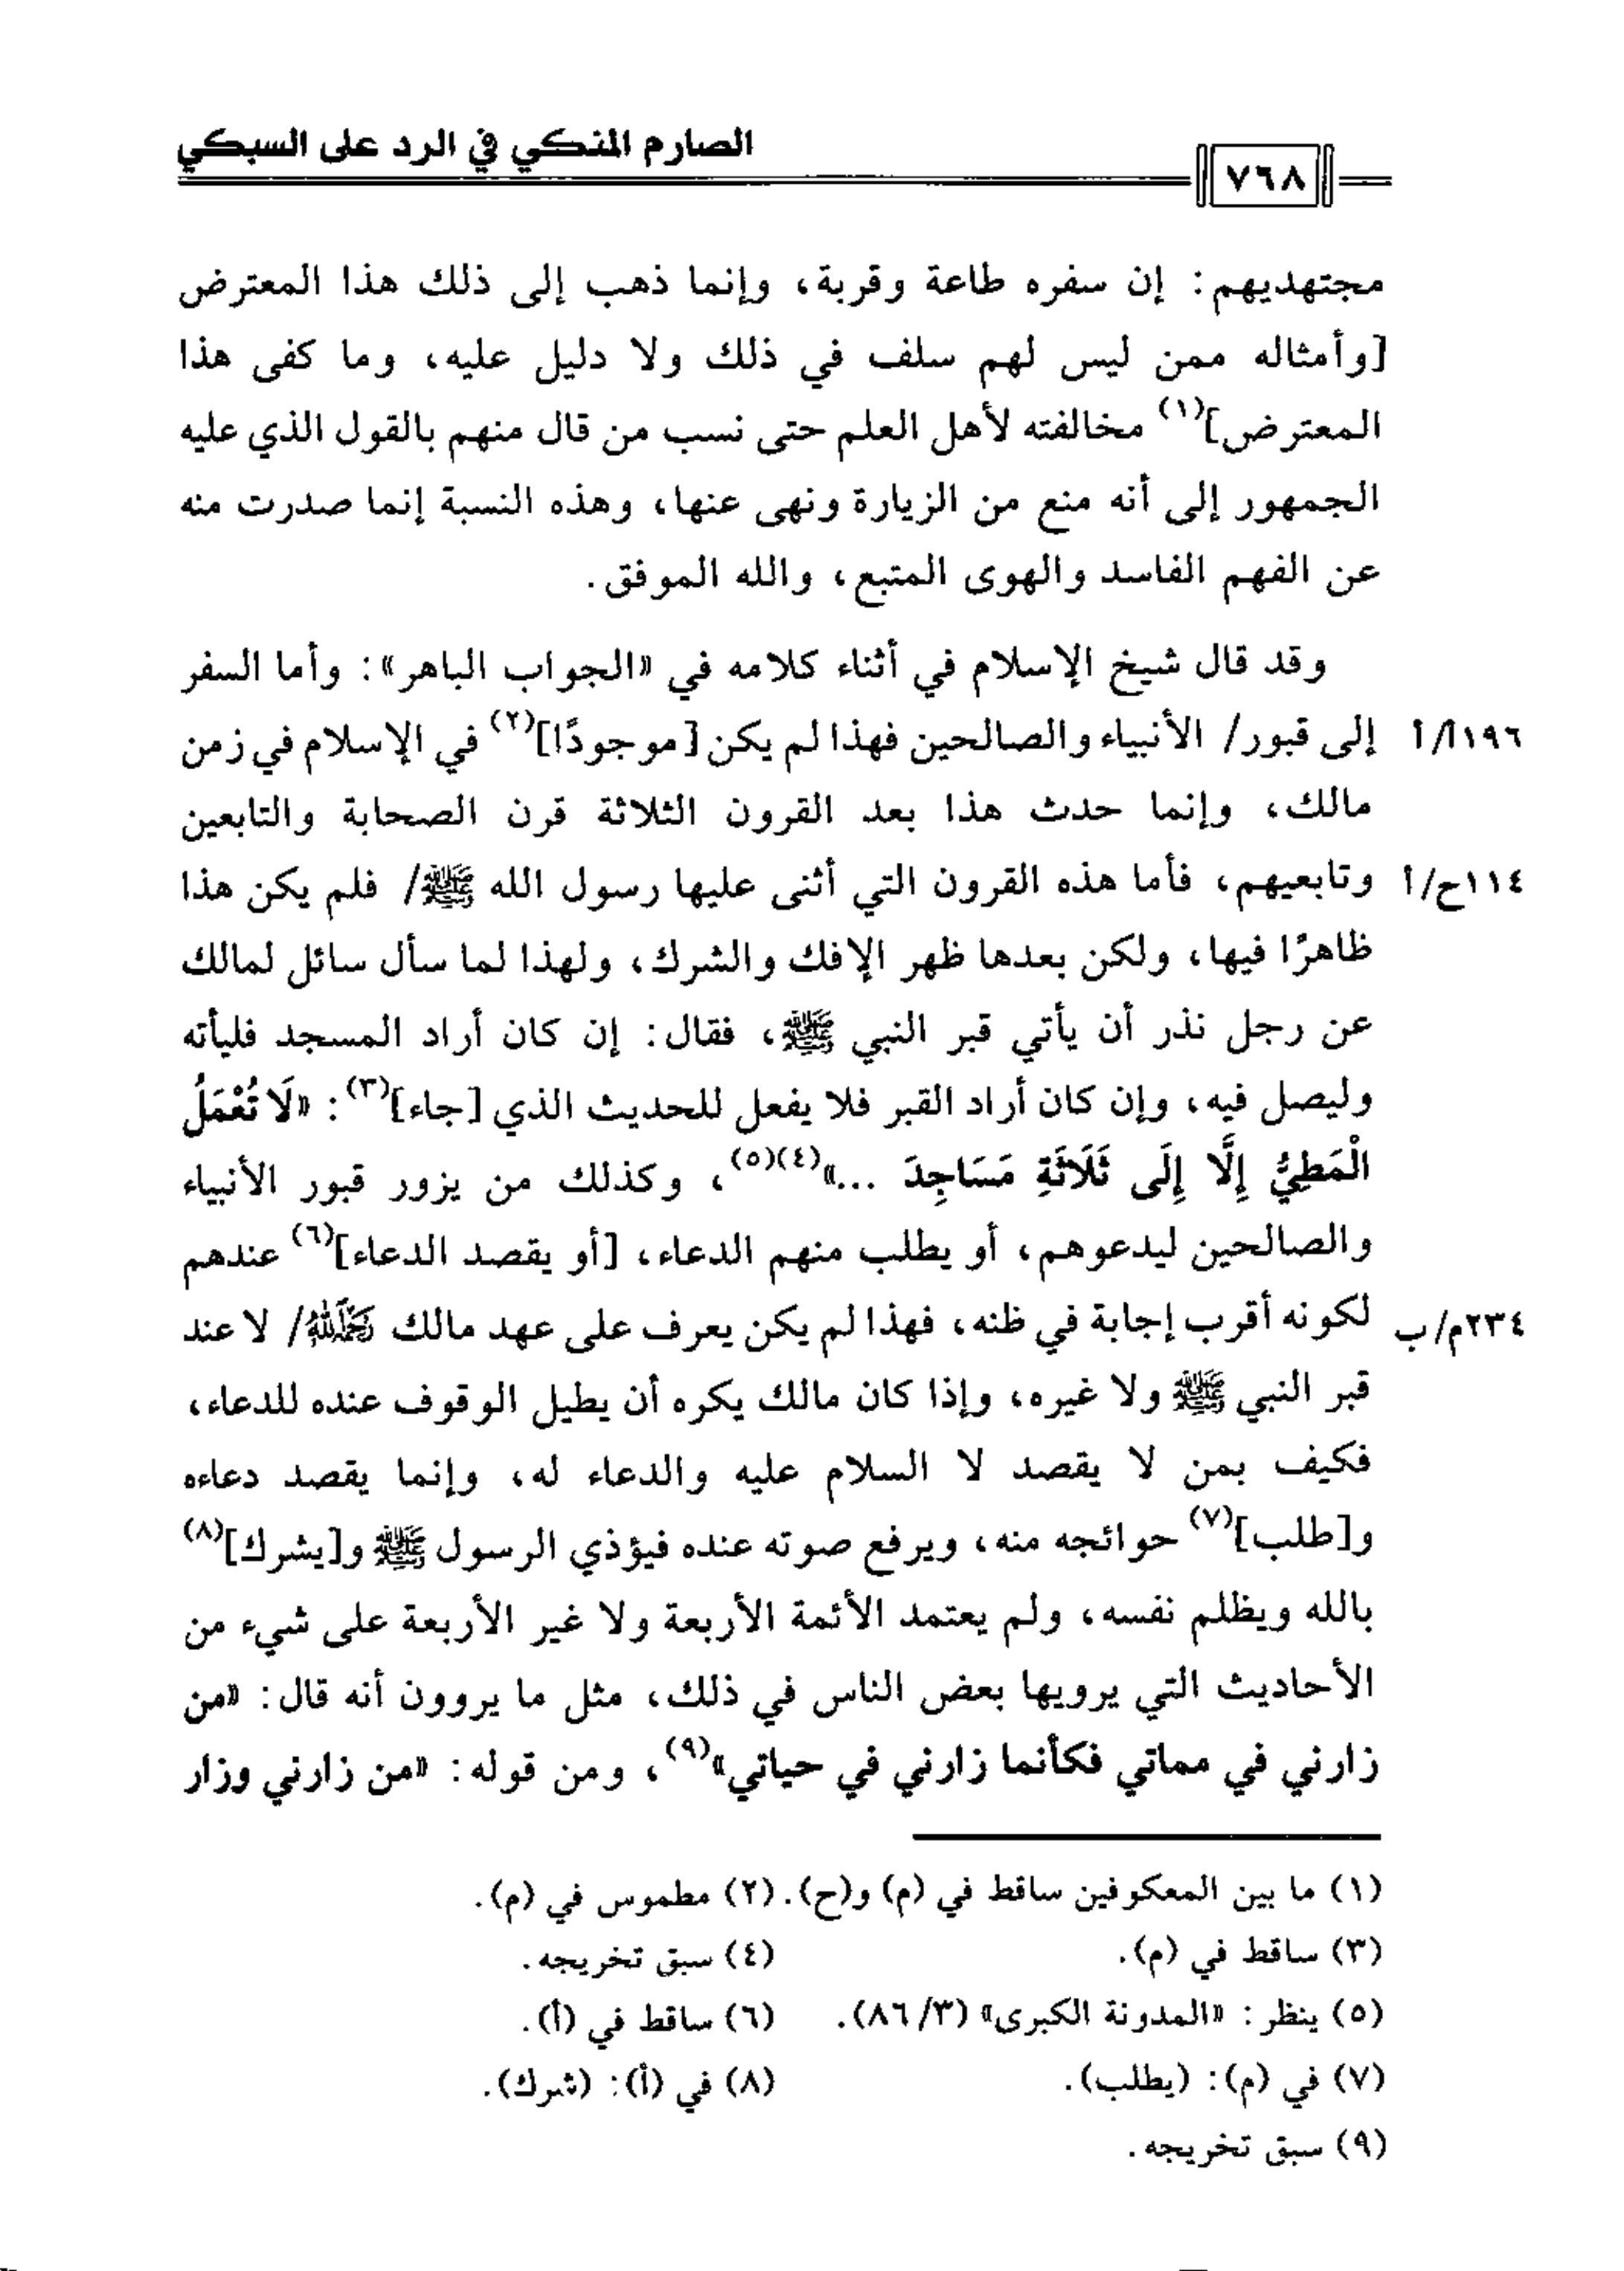 الصارم المنكي في الرد على السبكي
٧٦٨
مجتهديهم: إن سفره طاعة وقربة، وإنما ذهب إلى ذلك هذا المعترض
[وأمثاله ممن ليس لهم سلف في ذلك ولا دليل عليه، وما كفى هذا
المعترض](١) مخالفته لأهل العلم حتى نسب من قال منهم بالقول الذي عليه
الجمهور إلى أنه منع من الزيارة ونهى عنها، وهذه النسبة إنما صدرت منه
عن الفهم الفاسد والهوى المتبع، والله الموفق.
وقد قال شيخ الإسلام في أثناء كلامه في «الجواب الباهر»: وأما السفر
إلى قبور/ الأنبياء والصالحين فهذا لم يكن [موجودًا](٢) في الإسلام في زمن
١٩٦أ/أ
مالك، وإنما حدث هذا بعد القرون الثلاثة قرن الصحابة والتابعين
وتابعيهم، فأما هذه القرون التي أثنى عليها رسول الله ﷺ/ فلم يكن هذا
١١٤ح/أ
ظاهرًا فيها، ولكن بعدها ظهر الإفك والشرك، ولهذا لما سأل سائل لمالك
عن رجل نذر أن يأتي قبر النبي ﷺ، فقال: إن كان أراد المسجد فليأته
وليصل فيه، وإن كان أراد القبر فلا يفعل للحديث الذي [جاء](٣): «لَا تُعْمَلُ
الْمَطِيُّ إِلَّا إِلَى ثَلَاثَةِ مَسَاجِدَ ...»(٤)(٥)، وكذلك من يزور قبور الأنبياء
والصالحين ليدعوهم، أو يطلب منهم الدعاء، [أو يقصد الدعاء](٦) عندهم
لكونه أقرب إجابة في ظنه، فهذا لم يكن يعرف على عهد مالك رَحِمَهُ اللهُ/ لا عند
٢٣٤م/ب
قبر النبي ﷺ ولا غيره، وإذا كان مالك يكره أن يطيل الوقوف عنده للدعاء،
فكيف بمن لا يقصد لا السلام عليه والدعاء له، وإنما يقصد دعاءه
و[طلب](٧) حوائجه منه، ويرفع صوته عنده فيؤذي الرسول ﷺ و[يشرك](٨)
بالله ويظلم نفسه، ولم يعتمد الأئمة الأربعة ولا غير الأربعة على شيء من
الأحاديث التي يرويها بعض الناس في ذلك، مثل ما يروون أنه قال: «من
زارني في مماتي فكأنما زارني في حياتي»(٩)، ومن قوله: «من زارني وزار
(١) ما بين المعكوفين ساقط في (م) و(ح). (٢) مطموس في (م).
(٣) ساقط في (م). (٤) سبق تخريجه.
(٥) ينظر: «المدونة الكبرى» (٣/ ٨٦). (٦) ساقط في (أ).
(٧) في (م): (يطلب). (٨) في (أ): (شرك).
(٩) سبق تخريجه.